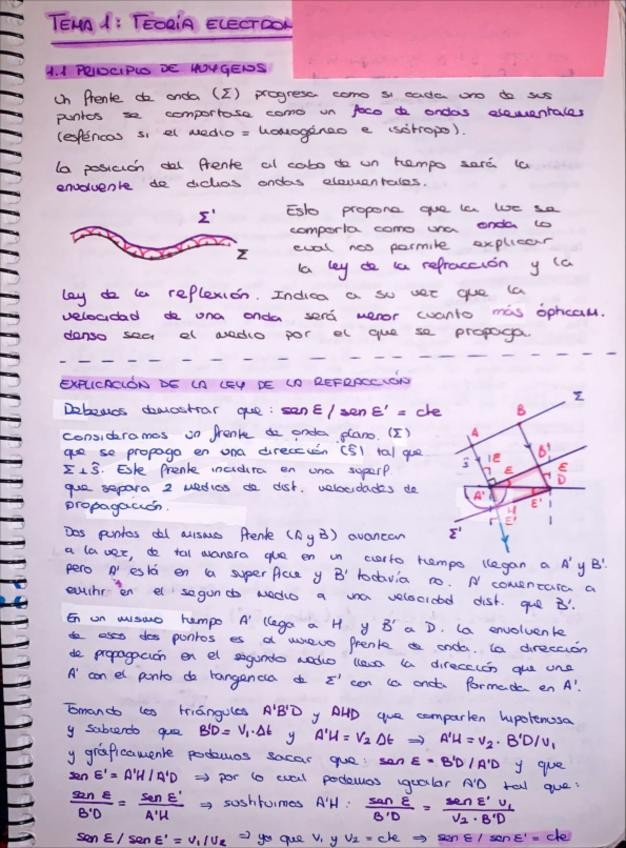 TEMA 1: TEORÍA ELECTRON
1.1 PRINCIPIO DE HUYGENS
Un frente de onda (Σ) progresa como si cada uno de sus
puntos se comportase como un foco de ondas elementales
(esféricas si el medio = homogéneo e isótropo).
La posición del frente al cabo de un tiempo será la
envolvente de dichas ondas elementales.
Σ'
Σ
Esto propone que la luz se
comporta como una onda lo
cual nos permite explicar
la ley de la refracción y la
ley de la reflexión. Indica a su vez que la
velocidad de una onda será menor cuanto más ópticam.
denso sea el medio por el que se propaga.
EXPLICACIÓN DE LA LEY DE LA REFRACCIÓN
Debemos demostrar que: sen Ɛ / sen Ɛ' = cte
Consideramos un frente de onda plano. (Σ)
que se propaga en una dirección (ŝ) tal que
Σ ⊥ ŝ. Este frente incidirá en una superf.
que separa 2 medios de dist. velocidades de
propagación.
Σ
B
A
ŝ
Ɛ
B'
Ɛ
Ɛ
D
A'
Ɛ'
H
Ɛ'
Σ'
Dos puntos del mismo frente (A y B) avanzan
a la vez, de tal manera que en un cierto tiempo llegan a A' y B'.
pero A' está en la superficie y B' todavía no. A' comenzará a
emitir en el segundo medio a una velocidad dist. que B'.
En un mismo tiempo A' llega a H y B' a D. La envolvente
de esos dos puntos es el nuevo frente de onda. La dirección
de propagación en el segundo medio lleva la dirección que une
A' con el punto de tangencia de Σ' con la onda formada en A'.
Tomando los triángulos A'B'D y AHD que comparten hipotenusa
y sabiendo que B'D = V₁·Δt y A'H = V₂ Δt ⇒ A'H = V₂ · B'D/V₁
y gráficamente podemos sacar que: sen Ɛ = B'D / A'D y que
sen Ɛ' = A'H / A'D ⇒ por lo cual podemos igualar A'D tal que:
sen Ɛ / B'D = sen Ɛ' / A'H ⇒ sustituimos A'H: sen Ɛ / B'D = sen Ɛ' V₁ / V₂ · B'D
sen Ɛ / sen Ɛ' = V₁ / V₂ ⇒ ya que V₁ y V₂ = cte ⇒ sen Ɛ / sen Ɛ' = cte